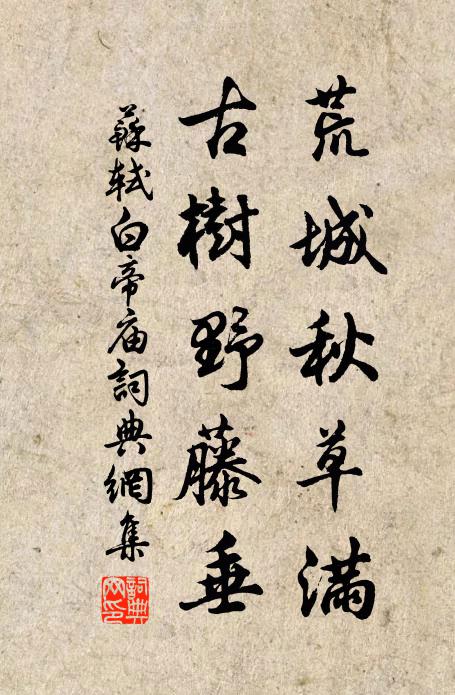 荒城秋草滿
古樹野藤垂
蘇軾白帝廟詞典網集
詞典网印